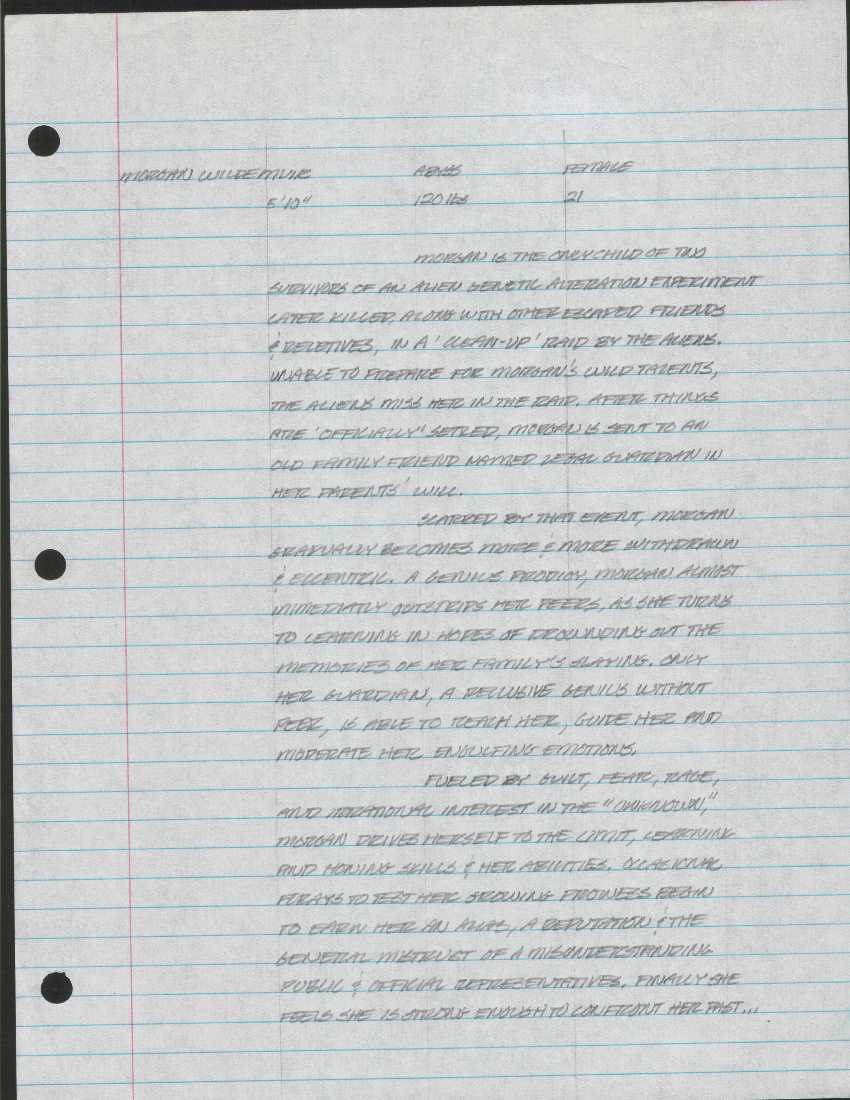 MORGAN WILDEMUIR ABYSS FEMALE
5'10" 120 lbs 21
MORGAN IS THE ONLY CHILD OF TWO
SURVIVORS OF AN ALIEN GENETIC ALTERATION EXPERIMENT
LATER KILLED, ALONG WITH OTHER ESCAPED FRIENDS
& RELETIVES, IN A 'CLEAN-UP' RAID BY THE ALIENS.
UNABLE TO PREPARE FOR MORGAN'S WILD TALENTS,
THE ALIENS MISS HER IN THE RAID. AFTER THINGS
ARE 'OFFICIALLY" SETLED, MORGAN IS SENT TO AN
OLD FAMILY FRIEND NAMED LEGAL GUARDIAN IN
HER PARENTS' WILL.
SCARRED BY THAT EVENT, MORGAN
GRADUALLY BECOMES MORE & MORE WITHDRAWN
& ECCENTRIC. A GENIUS PRODIGY, MORGAN ALMOST
IMMEDIATLY OUTSTRIPS HER PEERS, AS SHE TURNS
TO LEARNING IN HOPES OF DROWNDING OUT THE
MEMORIES OF HER FAMILY'S SLAYING. ONLY
HER GUARDIAN, A RECLUSIVE GENIUS WITHOUT
PEER, IS ABLE TO REACH HER, GUIDE HER AND
MODERATE HER ENGULFING EMOTIONS.
FUELED BY GUILT, FEAR, RAGE,
AND IRRATIONAL INTEREST IN THE "UNKNOWN,"
MORGAN DRIVES HERSELF TO THE LIMIT, LEARNING
AND HONING SKILLS & HER ABILITIES. OCCASIONAL
FORAYS TO TEST HER GROWING PROWESS BEGIN
TO EARN HER AN ALIAS, A REPUTATION & THE
GENERAL MISTRUST OF A MISUNDERSTANDING
PUBLIC & OFFICIAL REPRESENTATIVES. FINALLY SHE
FEELS SHE IS STRONG ENOUGH TO CONFRONT HER PAST...